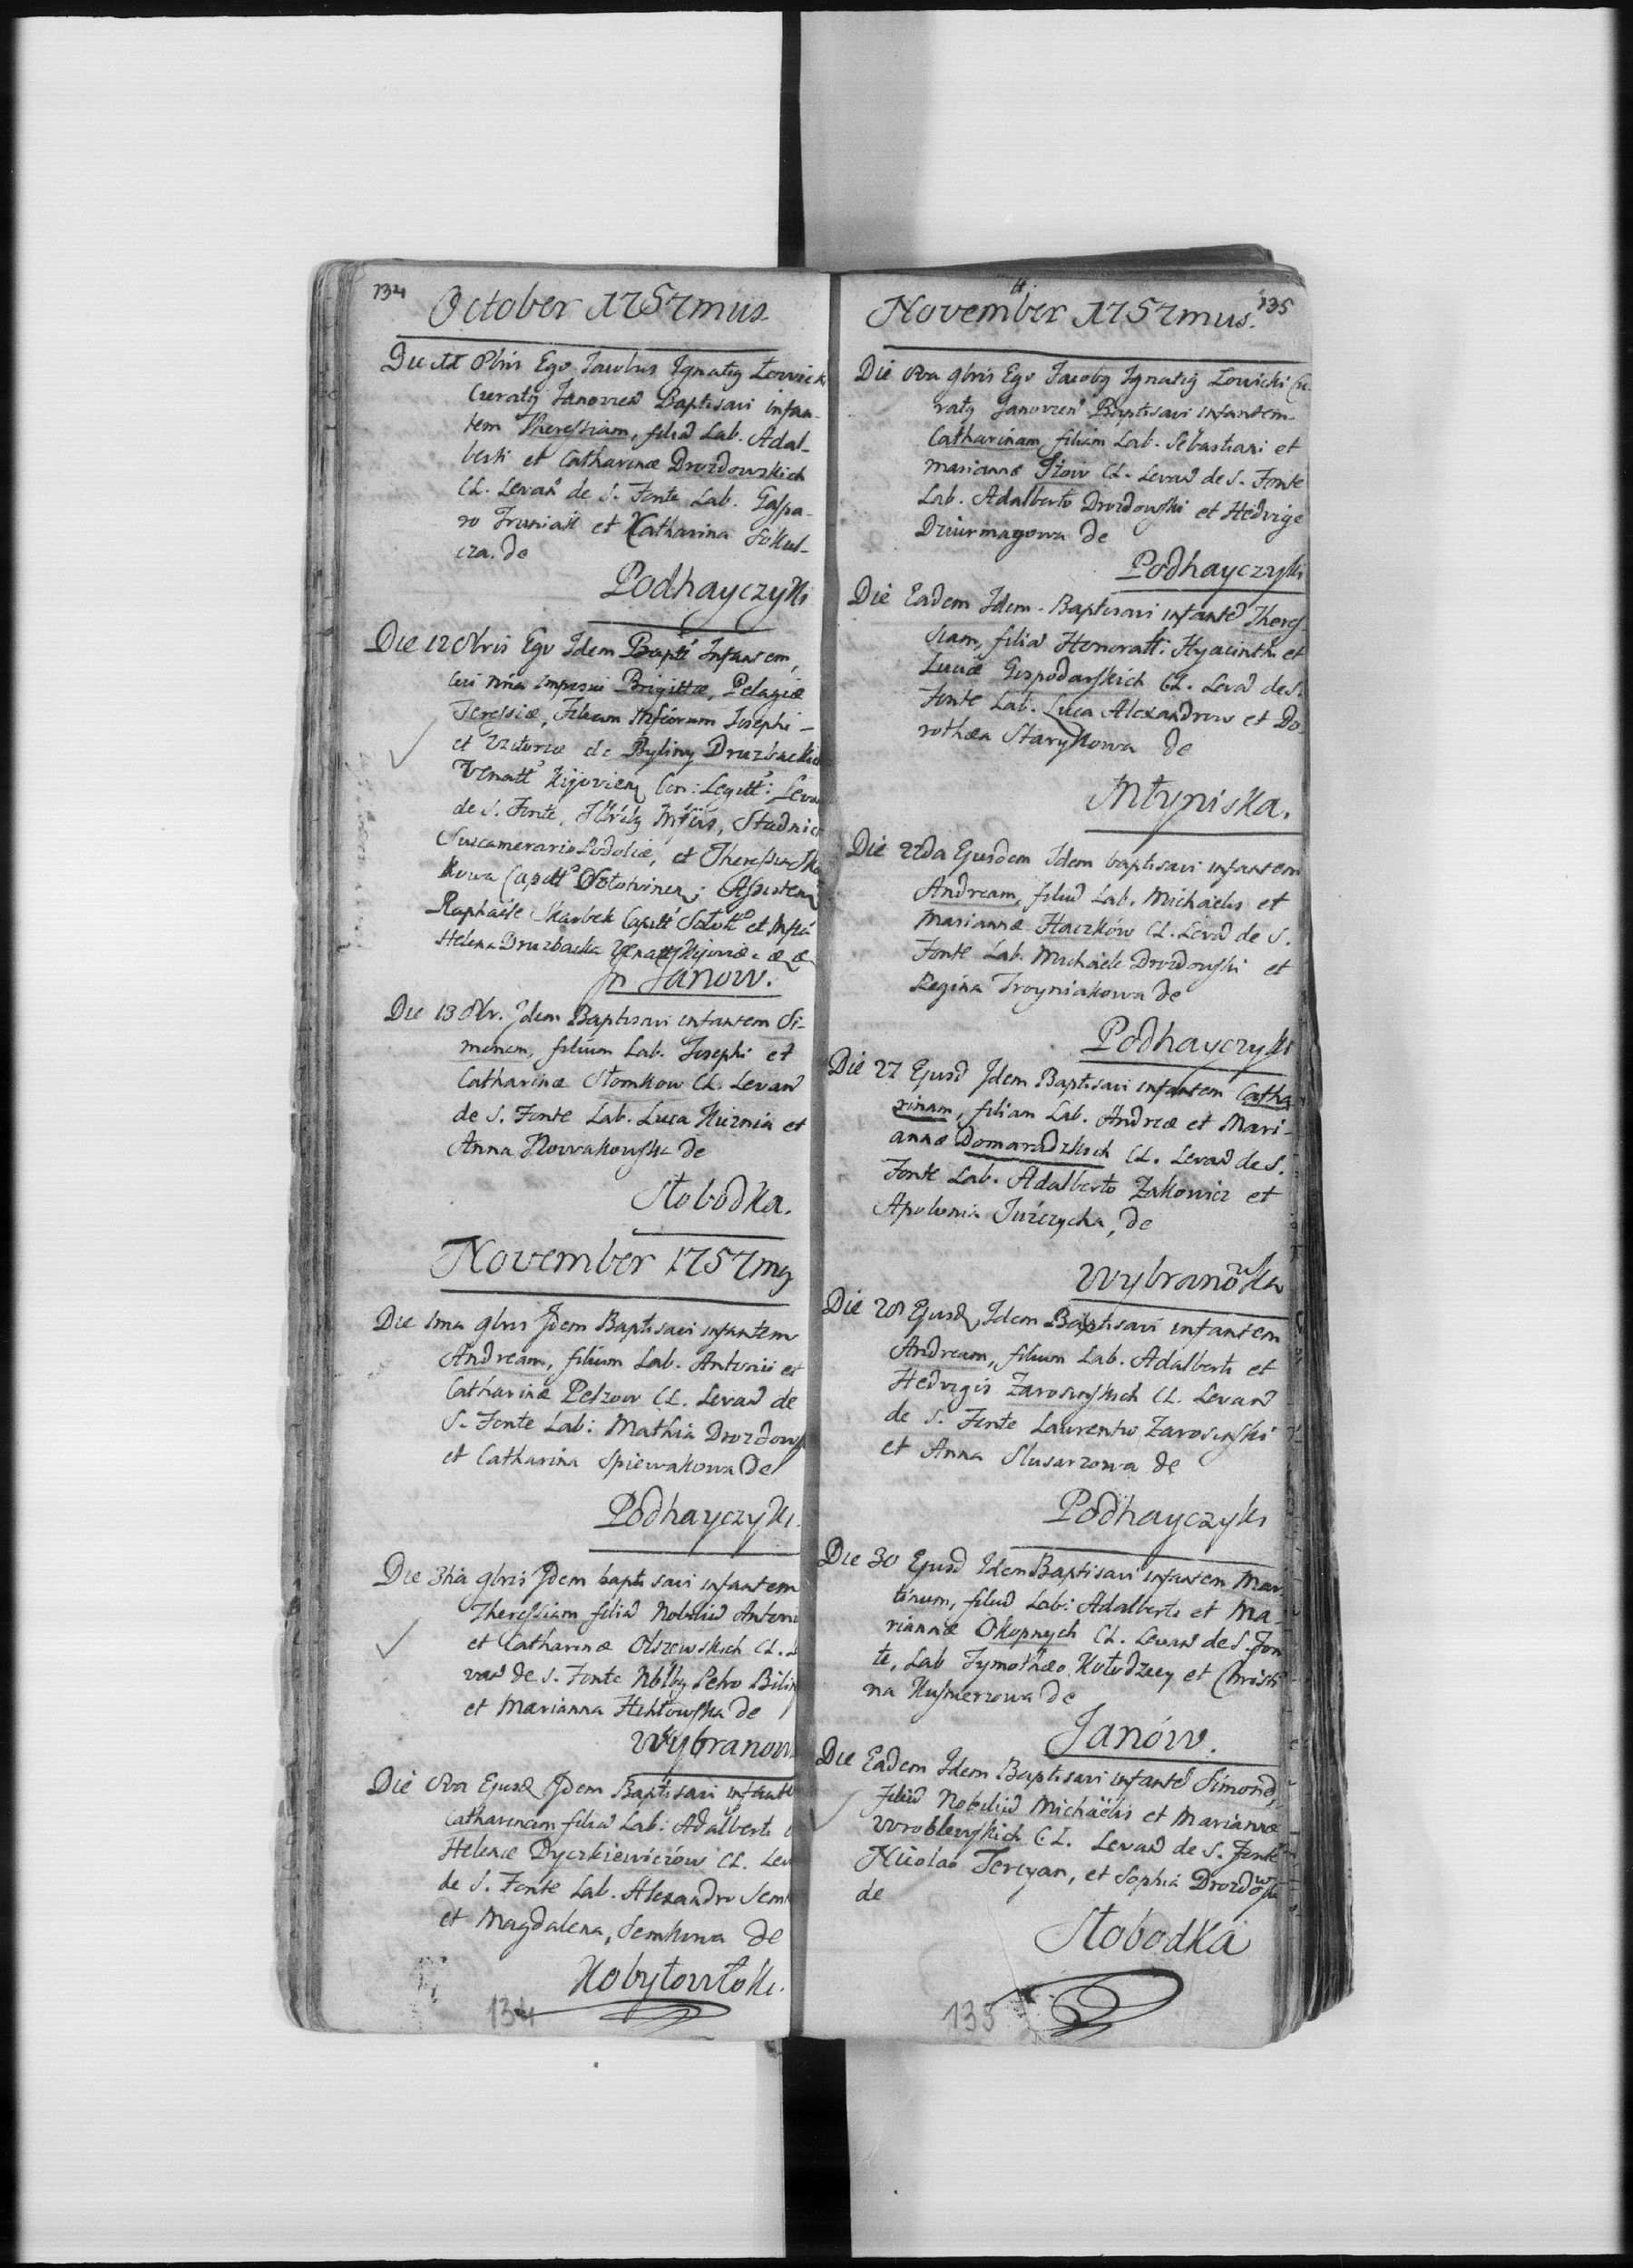 134
October 1757mus.
Die 8bris Ego Jacobus Ignatig Łowicki
Curatg Janovien Baptisavi infan-
tem Theressiam, filia Lab. Adal-
berti et Catharinæ Drozdowskich
CL. Levan de S. Fonte Lab. Gaspa-
ro et Katharina Sokul-
cza. de
Podhayczyki
Die 12 8bris Ego Idem Bapti Infantem,
cui nina imposui Brigittæ, Pelagiæ
Teressiæ, Filiam Josephi
et de Byliny Druzbackich
Kijovien Con: Legitt: Leva
de S. Fonte, Stadnic
Succamerario Podoliæ, et Theressia
Raphaele Skarbek et
Helena Druzbacka
in Janow.
Die 13 8br. Idem Baptisavi infantem Si-
monem, filium Lab. Josephi et
Catharinæ Słomkow CL. Levan
de S. Fonte Lab. Luca Kuznia et
Anna Nowakowska de
Słobodka.
November 1757mg
Die 1ma 9bris Idem Baptisavi infantem
Andream, filium Lab. Antonii et
Catharinæ Pelzow CL. Levan de
S. Fonte Lab: Mathia Drozdows
et Catharina Spiewakowa de
Podhayczyki.
Die 3tia 9bris Idem baptisavi infantem
Theressiam filia Nobiliu Antoni
et Catharinæ Olszewskich CL. L
van de S. Fonte Petro Bilin
et Marianna de
Wybranow
Die 8va Ejusd Idem Baptisavi infante
Catharinam filia Lab: Adalberti e
Helenæ Dyczkiewiczow CL. Lev
de S. Fonte Lab. Alexandro Sem
et Magdalena, Semkowa de
Kobyłowłoki.
134
135
November 1757mus.
Die 8va 9bris Ego Jacobg Ignatig Łowicki Cu
ratg Janovien Baptisavi infantem
Catharinam, filiam Lab. Sebastiani et
Mariannæ CL. Levan de S. Fonte
Lab. Adalberto Drozdowski et Hedvige
Dziurmagowa de
Podhayczyki
Die Eadem Idem Baptisavi infante Theres-
siam, filia Honoratt: Hyacinthi et
Luciæ Gospodarskich CL. Leva de S.
Fonte Lab. Luca Alexandrow et Do-
rothea Starykowa de
Młyniska.
Die 22da Ejusdem Idem baptisavi infantem
Andream, filiu Lab. Michaelis et
Mariannæ Haczkow CL. Leva de S.
Fonte Lab. Michaele Drozdowski et
Regina Troyniakowa de
Podhayczyki
Die 27 Ejusd Idem Baptisavi infantem Catha
rinam, filiam Lab. Andreæ et Mari-
annæ Domaradzkich CL. Levan de S.
Fonte Lab. Adalberto Zakowicz et
Apolonia, de
Wybranowka
Die 28 Ejusd, Idem Baptisavi infantem
Andream, filium Lab. Adalberti et
Hedvigis Zarosinskich CL. Levan
de S. Fonte Laurentio Zarosinski
et Anna Slusarzowa de
Podhayczyki
Die 30 Ejusd Idem Baptisavi infantem Mar-
tinum, filiu Lab: Adalberti et Ma-
riannæ Okopnych CL. Levan de S. Fon
te, Lab Tymotheo Kołodziey et Christi
na Kusnierzowa de
Janów.
Die Eadem Idem Baptisavi infante Simone,
filiu Nobiliu Michaelis et Mariannæ
Wroblewskich CL. Levan de S. Fonte
Nicolao Tercyan, et Sophia Drozdowska
de
Słobodka
135